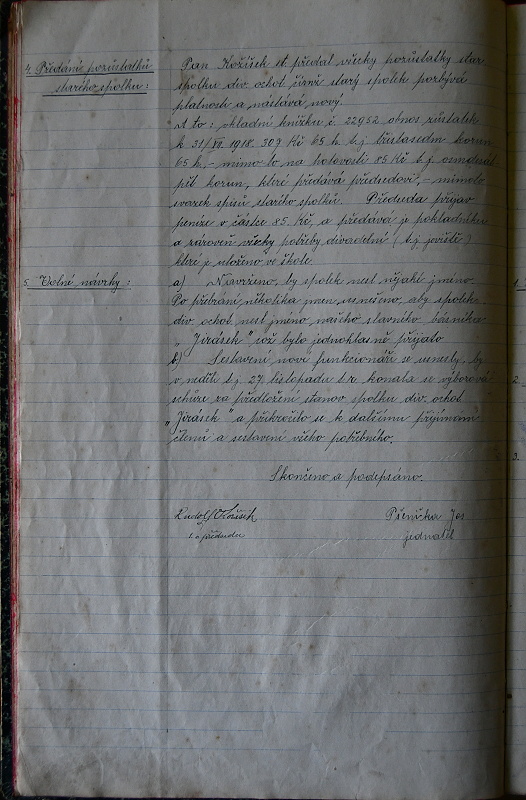 4. Předání pozůstatků
starého spolku:
Pan Kožíšek st. předal všecky pozůstatky star
spolku div. ochot. čímž starý spolek pozbývá
platnosti a nastává nový.
A to: vkladní knížku č. 22952 obnos zůstatek
k 31/VII. 1918. 309 Kč 65 h. t.j. třistasedm korun
65 h. - mimo to na hotovosti 85 Kč t. j. osmdesát
pět korun, které předává předsedovi, - mimoto
svazek spisů starého spolku. Předseda přijav
peníze v částce 85 Kč, a předává je pokladníku
a zároveň všecky potřeby divadelní (t.j. jeviště)
které je uloženo ve škole.
5. Volné návrhy:
a) Navrženo, by spolek nesl nějaké jméno.
Po přebrání několika jmen, usnešeno, aby spolek
div. ochot. nesl jméno našeho slavného básníka
"Jirásek", což bylo jednohlasně přijato
b) Sestavení noví funkcionáři se usnesly, by
v neděli t.j. 27. listopadu t.r. konala se výborová
schůze za předložení stanov spolku div. ochot.
"Jirásek" a přikročilo se k dalšímu přijímaní
členů a sestavení všeho potřebného.
Skončeno a podepsáno.
Rudolf Kožíšek
předseda
Pšenička Jos
jednatel
1.
2.
3.